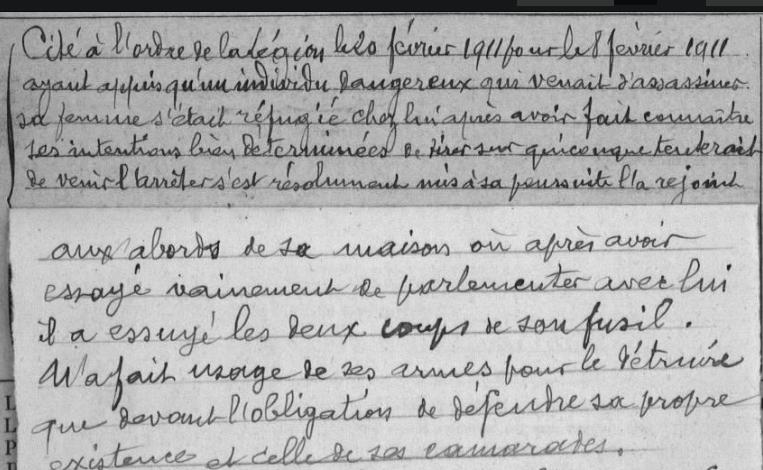 Cité à l'ordre de la Légion le 20 février 1911 pour le 8 février 1911
ayant appris qu'un individu dangereux qui venait d'assassiner
sa femme s'était réfugié chez lui après avoir fait connaître
ses intentions bien determinées de tirer sur quiconque tenterait
de venir l'arrêter s'est résolument mis à sa poursuite l'a rejoint
aux abords de sa maison où après avoir
essayé vainement de parlementer avec lui
il a essuyé les deux coups de son fusil.
N'a fait usage de ses armes pour le détruire
que devant l'obligation de défendre sa propre
existence et celle de ses camarades.